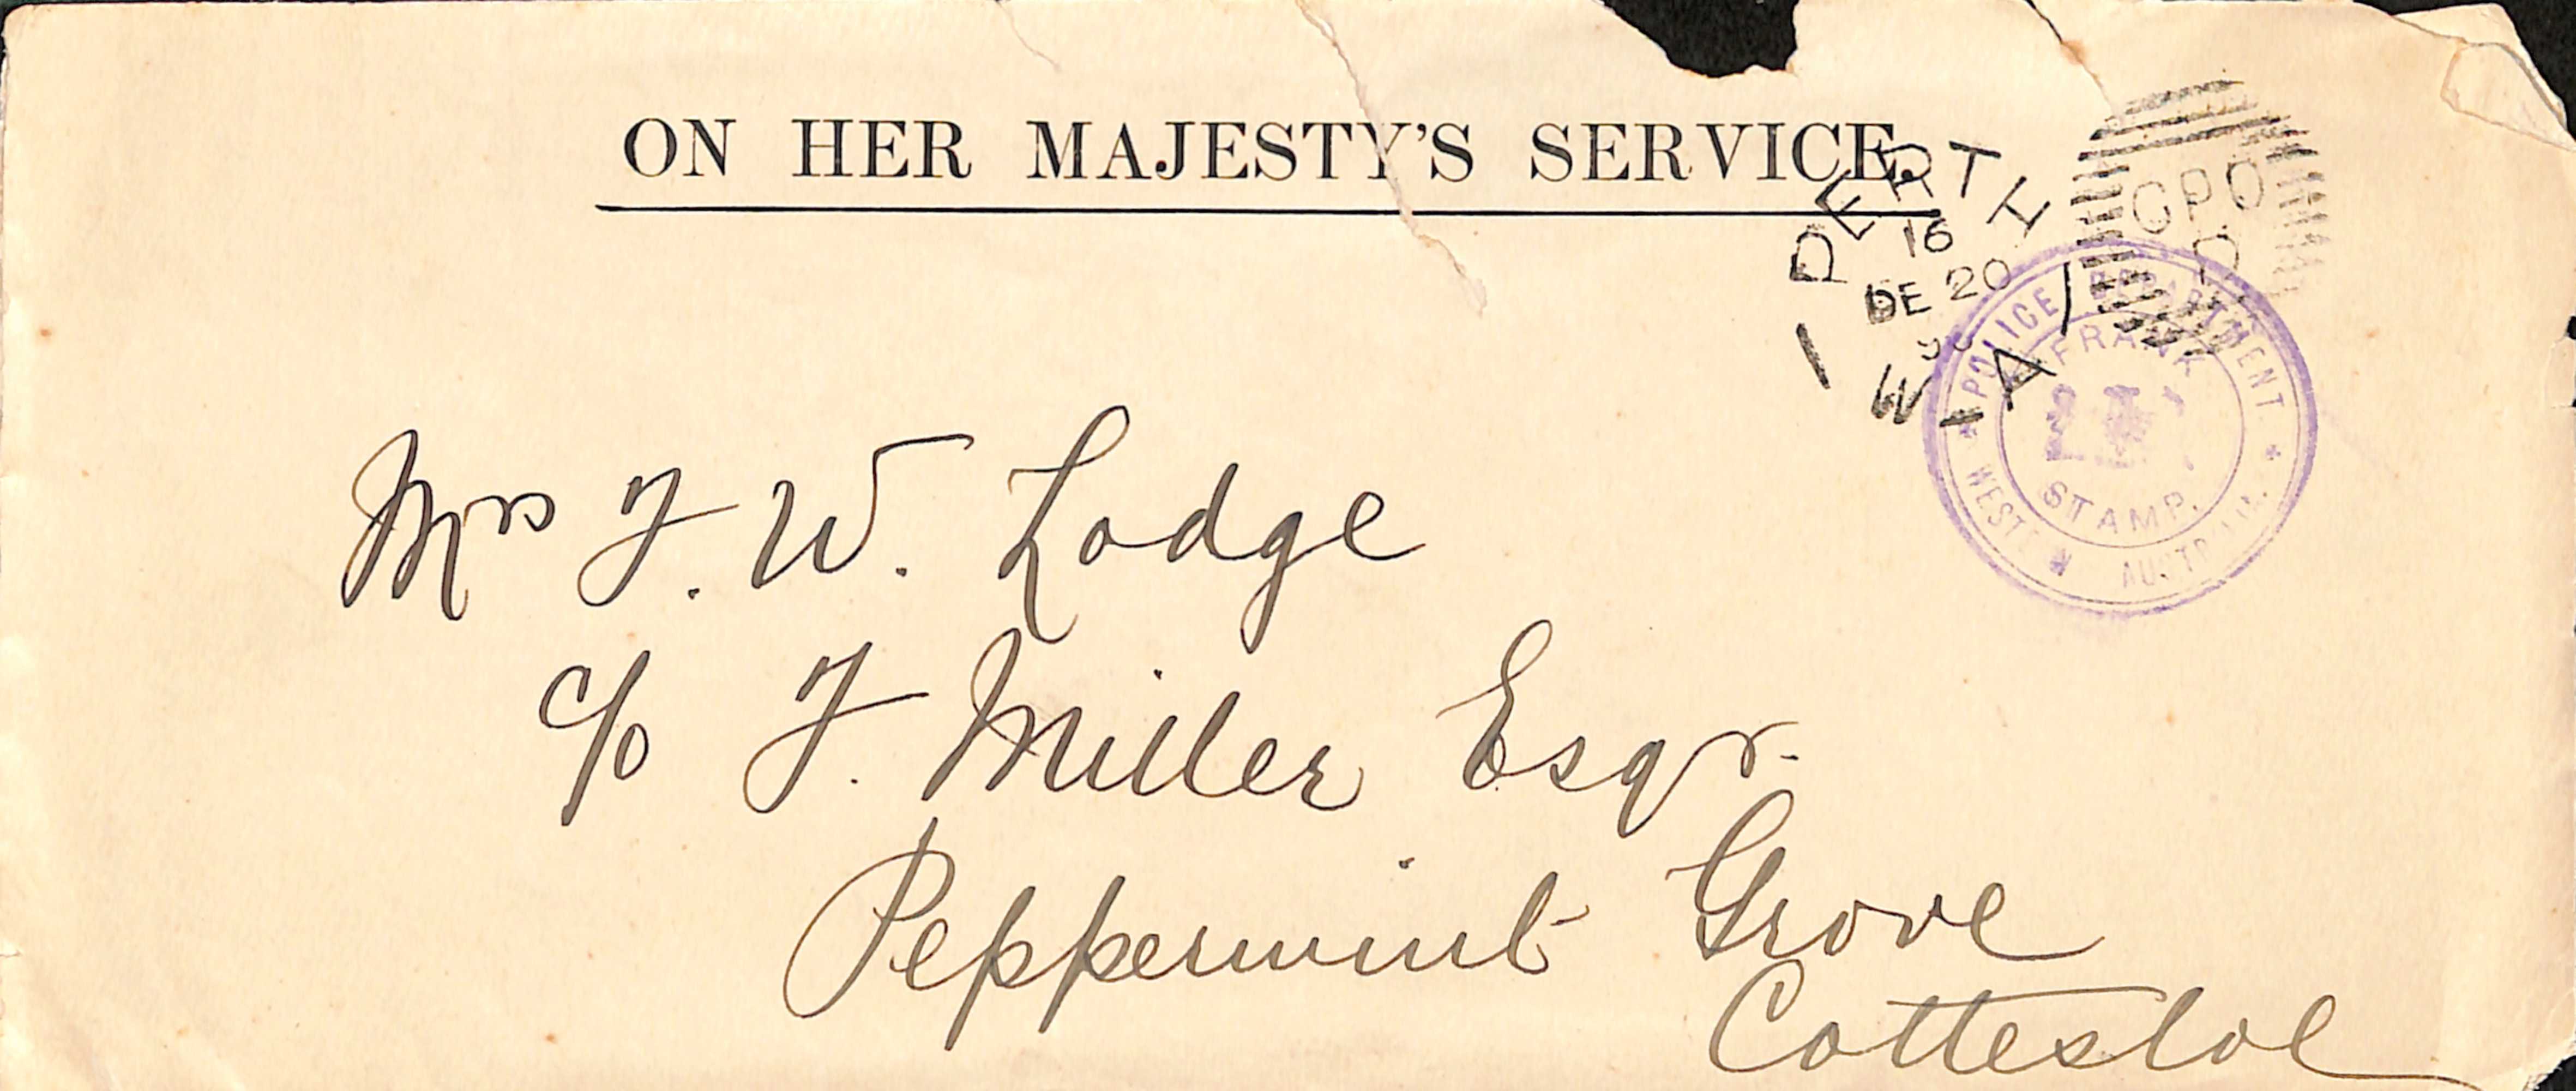 ON HER MAJESTY'S SERVICE.
PERTH
16
DE 20
W A
GPO
POLICE DEPARTMENT
FRANK
STAMP.
WESTERN AUSTRALIA.
Mrs F. W. Lodge
c/o F. Miller Esqr.
Peppermint Grove
Cottesloe